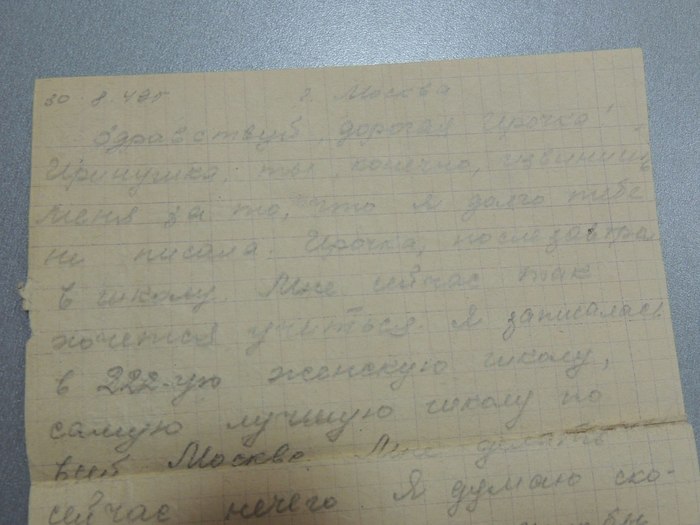 30 8.48г г. Москва
Здравствуй, дорогая Ирочка!
Иринушка, ты, конечно, извинишь
меня за то, что я долго тебе
не писала. Ирочка, послезавтра
в школу. Мне сейчас так
хочется учиться. Я записалась
в 222-ую женскую школу,
самую лучшую школу по
всей Москве. Мне делать
сейчас нечего. Я думаю ско-